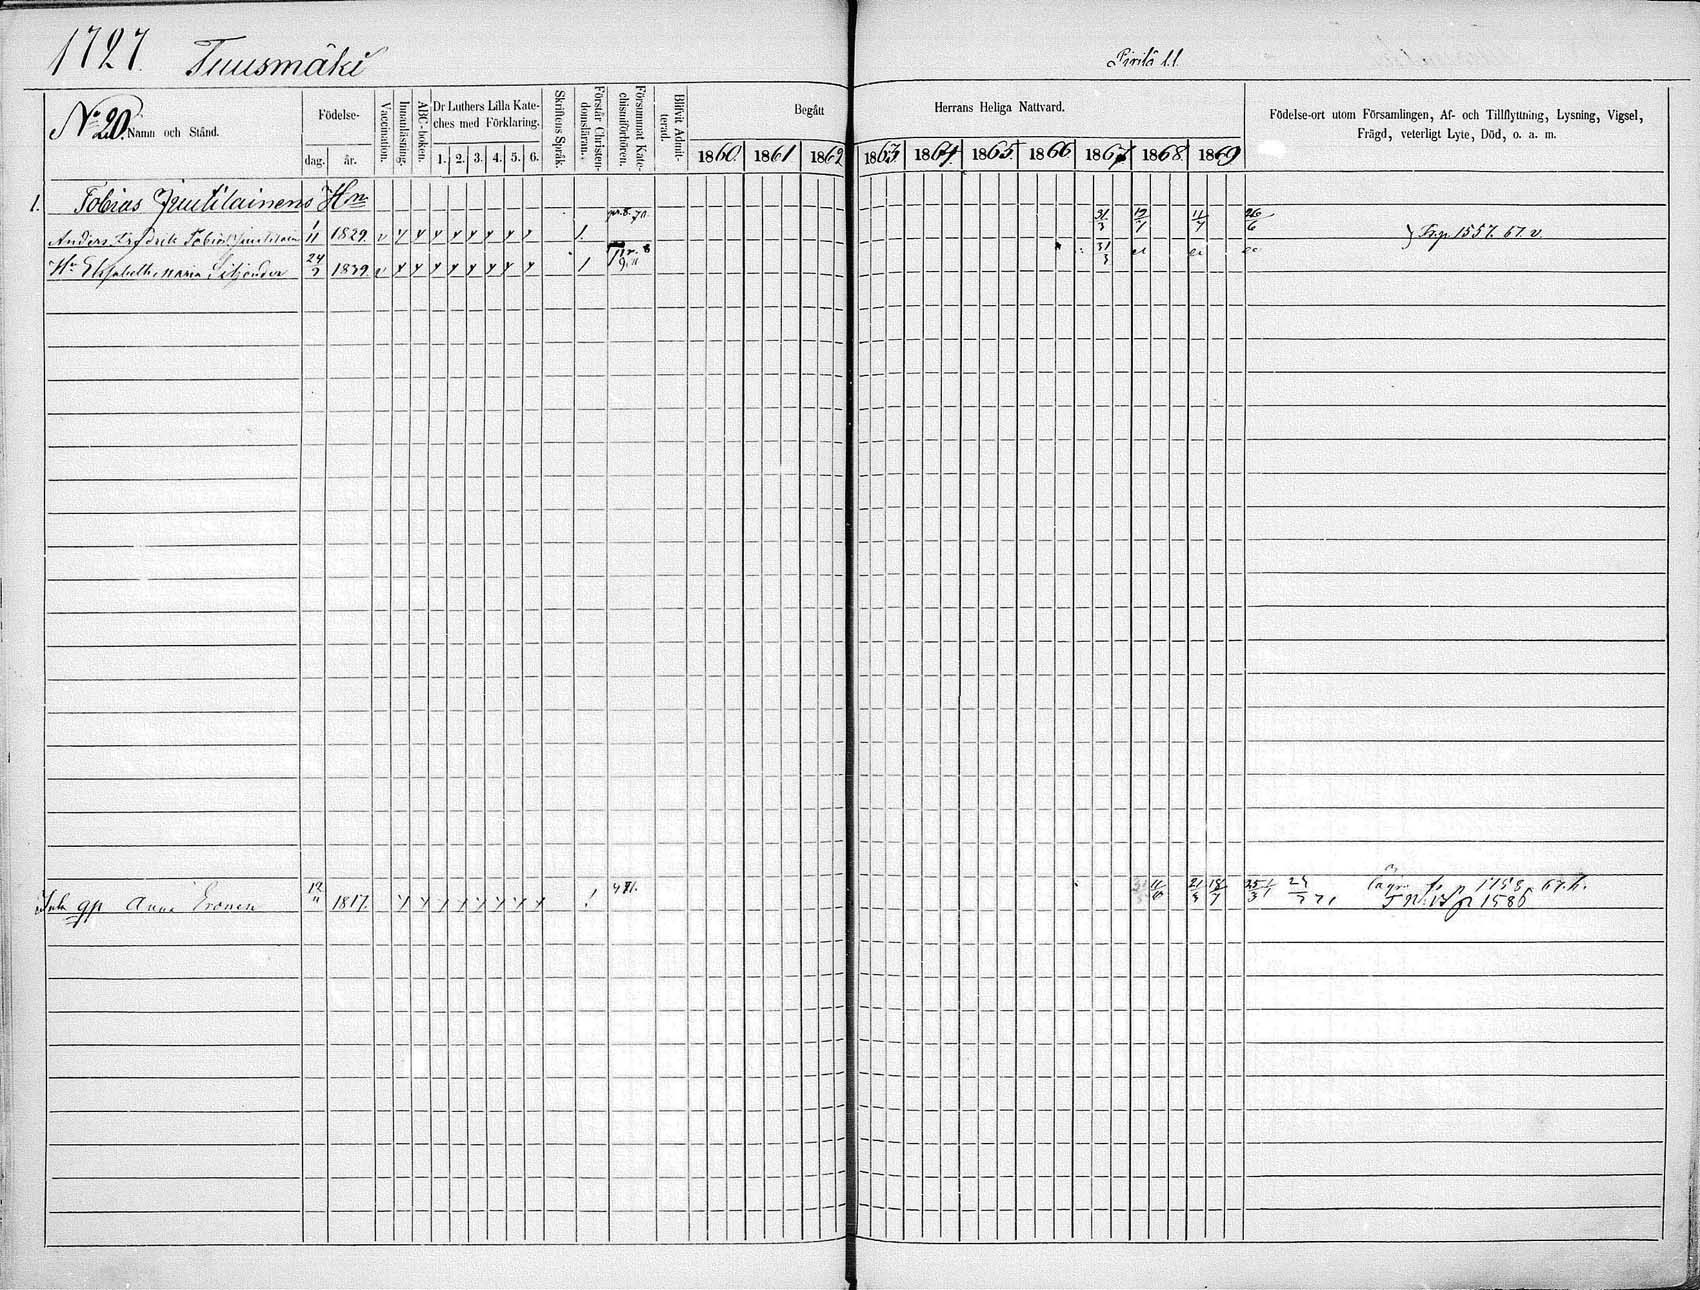 1727. Tuusmäki
Pirilä
No 20.
Namn och Stånd.
Födelse-
dag. år.
Vaccination.
Innanläsning.
ABC-boken.
Dr Luthers Lilla Kate-
ches med Förklaring.
1. 2. 3. 4. 5. 6.
Skriftens Språk.
Förstår Christen-
domsläran.
Försummat Kate-
chismiförhören.
Blifvit Admit-
terad.
Begått
Herrans Heliga Nattvard.
1860. 1861 1862 1863 1864. 1865. 1866 1867 1868 1869
Födelse-ort utom Församlingen, Af- och Tillflyttning, Lysning, Vigsel,
Frägd, veterligt Lyte, Död, o. a. m.
1. Tobias Juutilainens
Anders Fredrik Tobias Juutilain 1/11 1829. 1. 31/3 11/7 26/6 1557. 67. v.
Hu Elisabeth Maria 1839. 1 31/3
gp Anna Eronen 12/11 1817. 11/6 21/3 18/7 25/3 1758 67. h.
1586